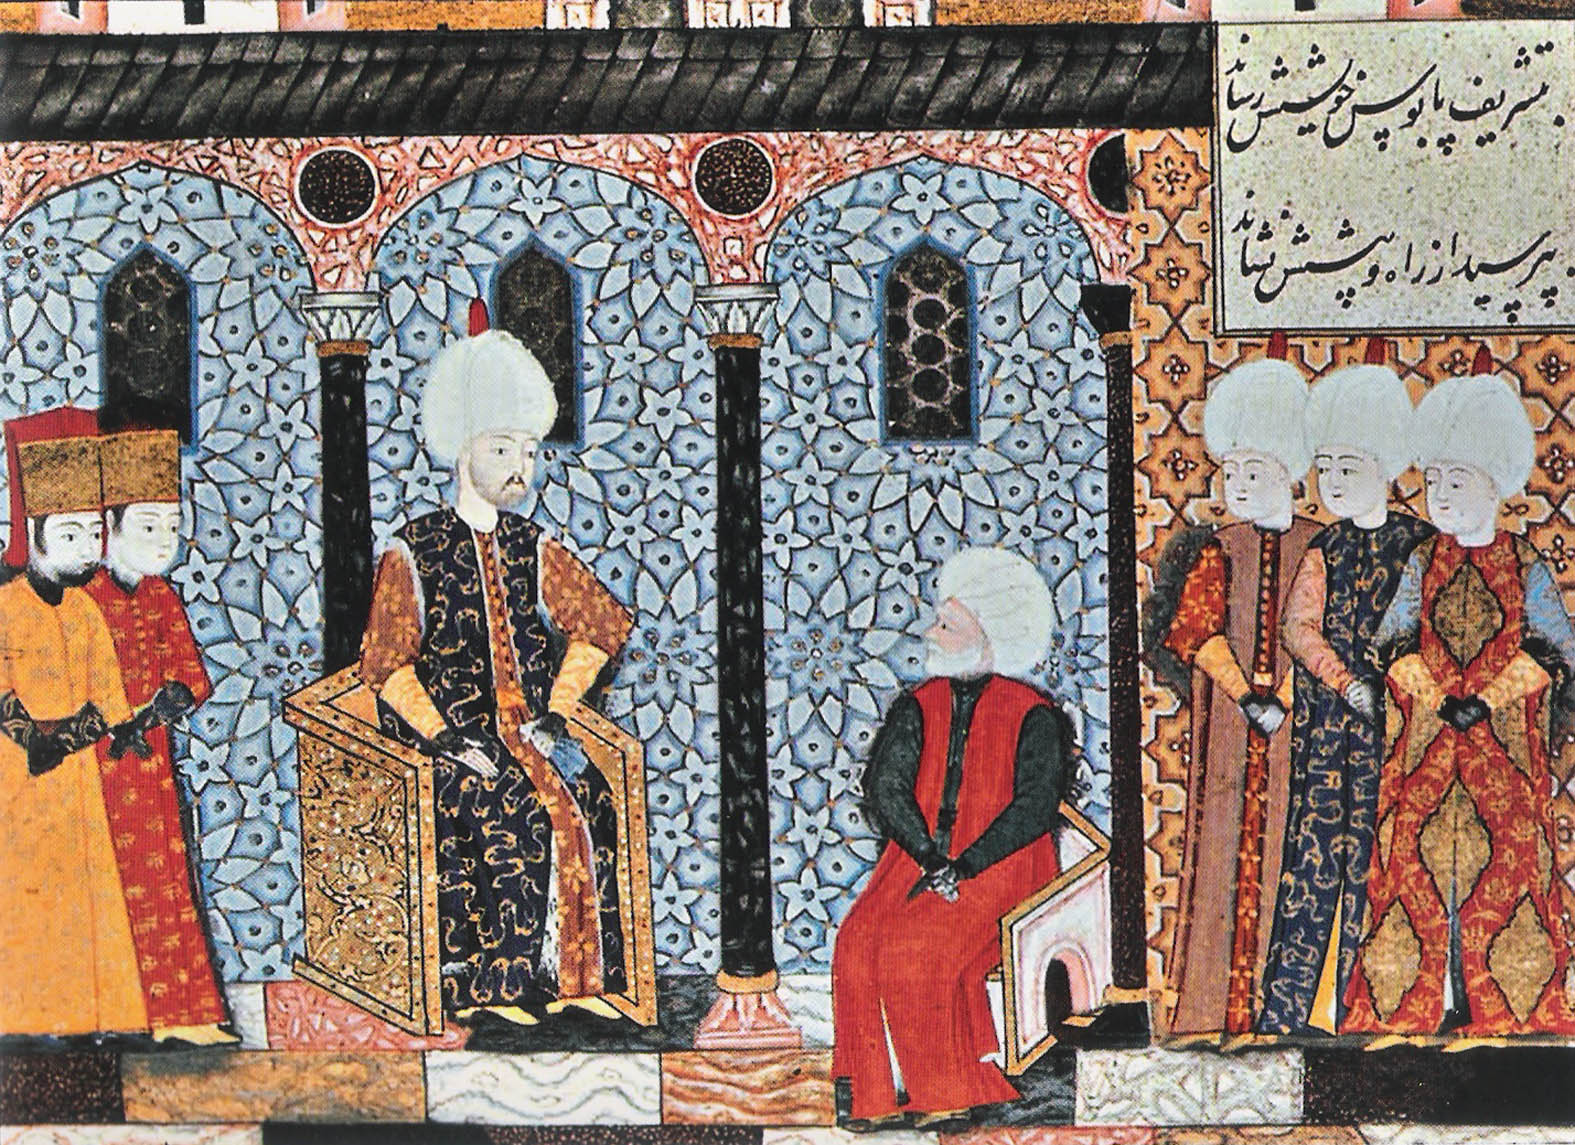 بتشریف پابوس خویشش رساند
بپرسید از راه و پیشش نشاند